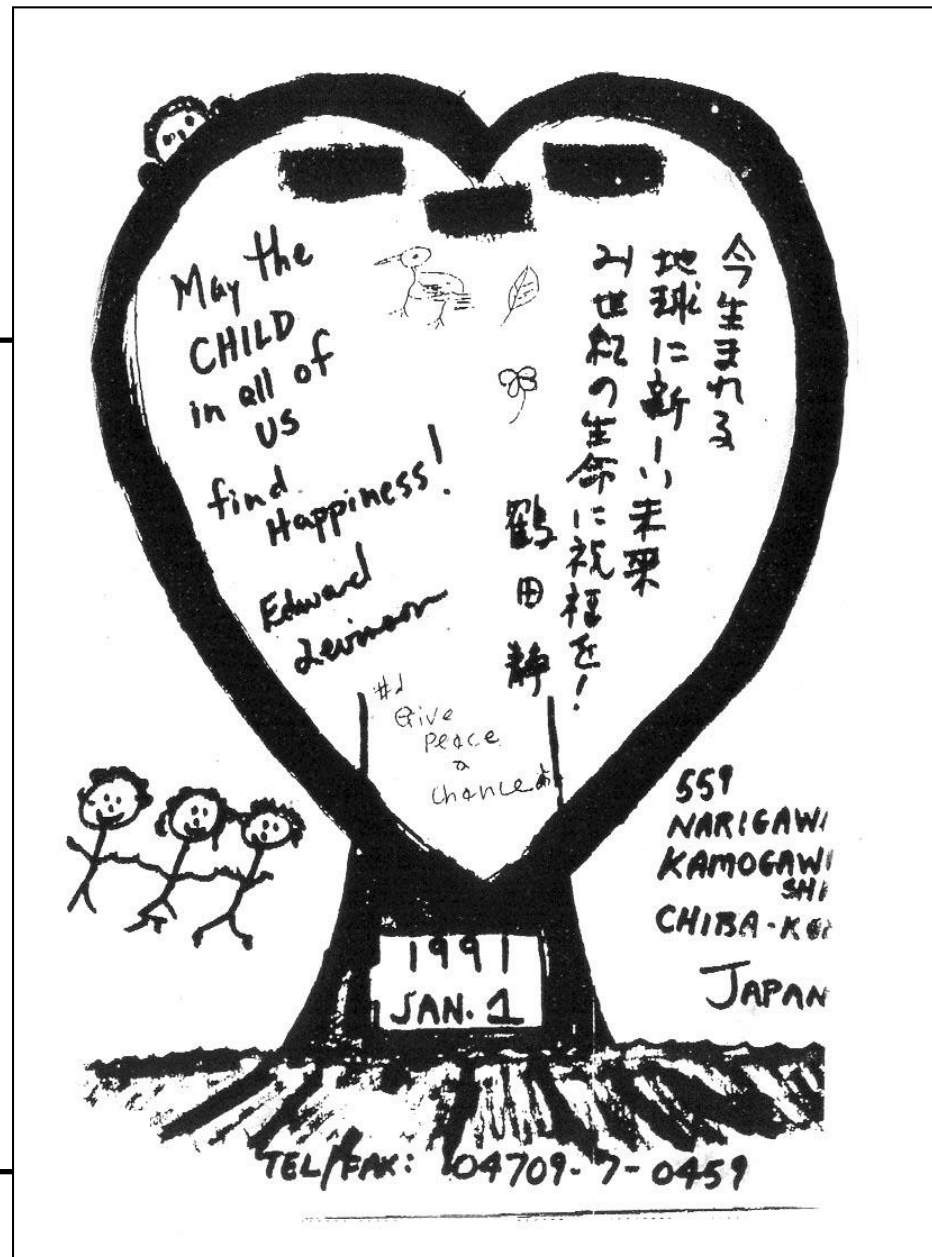 May the
CHILD
in all of
us
find
Happiness!
Edward
Levinson
今生まれる
地球に新しい未来
21世紀の生命に祝福を!
鶴田静
Give
Peace
a
Chance
559
NARIGAWA
KAMOGAWA
SHI
CHIBA-KEN
JAPAN
1991
JAN. 1
TEL/FAX: 04709-7-0459